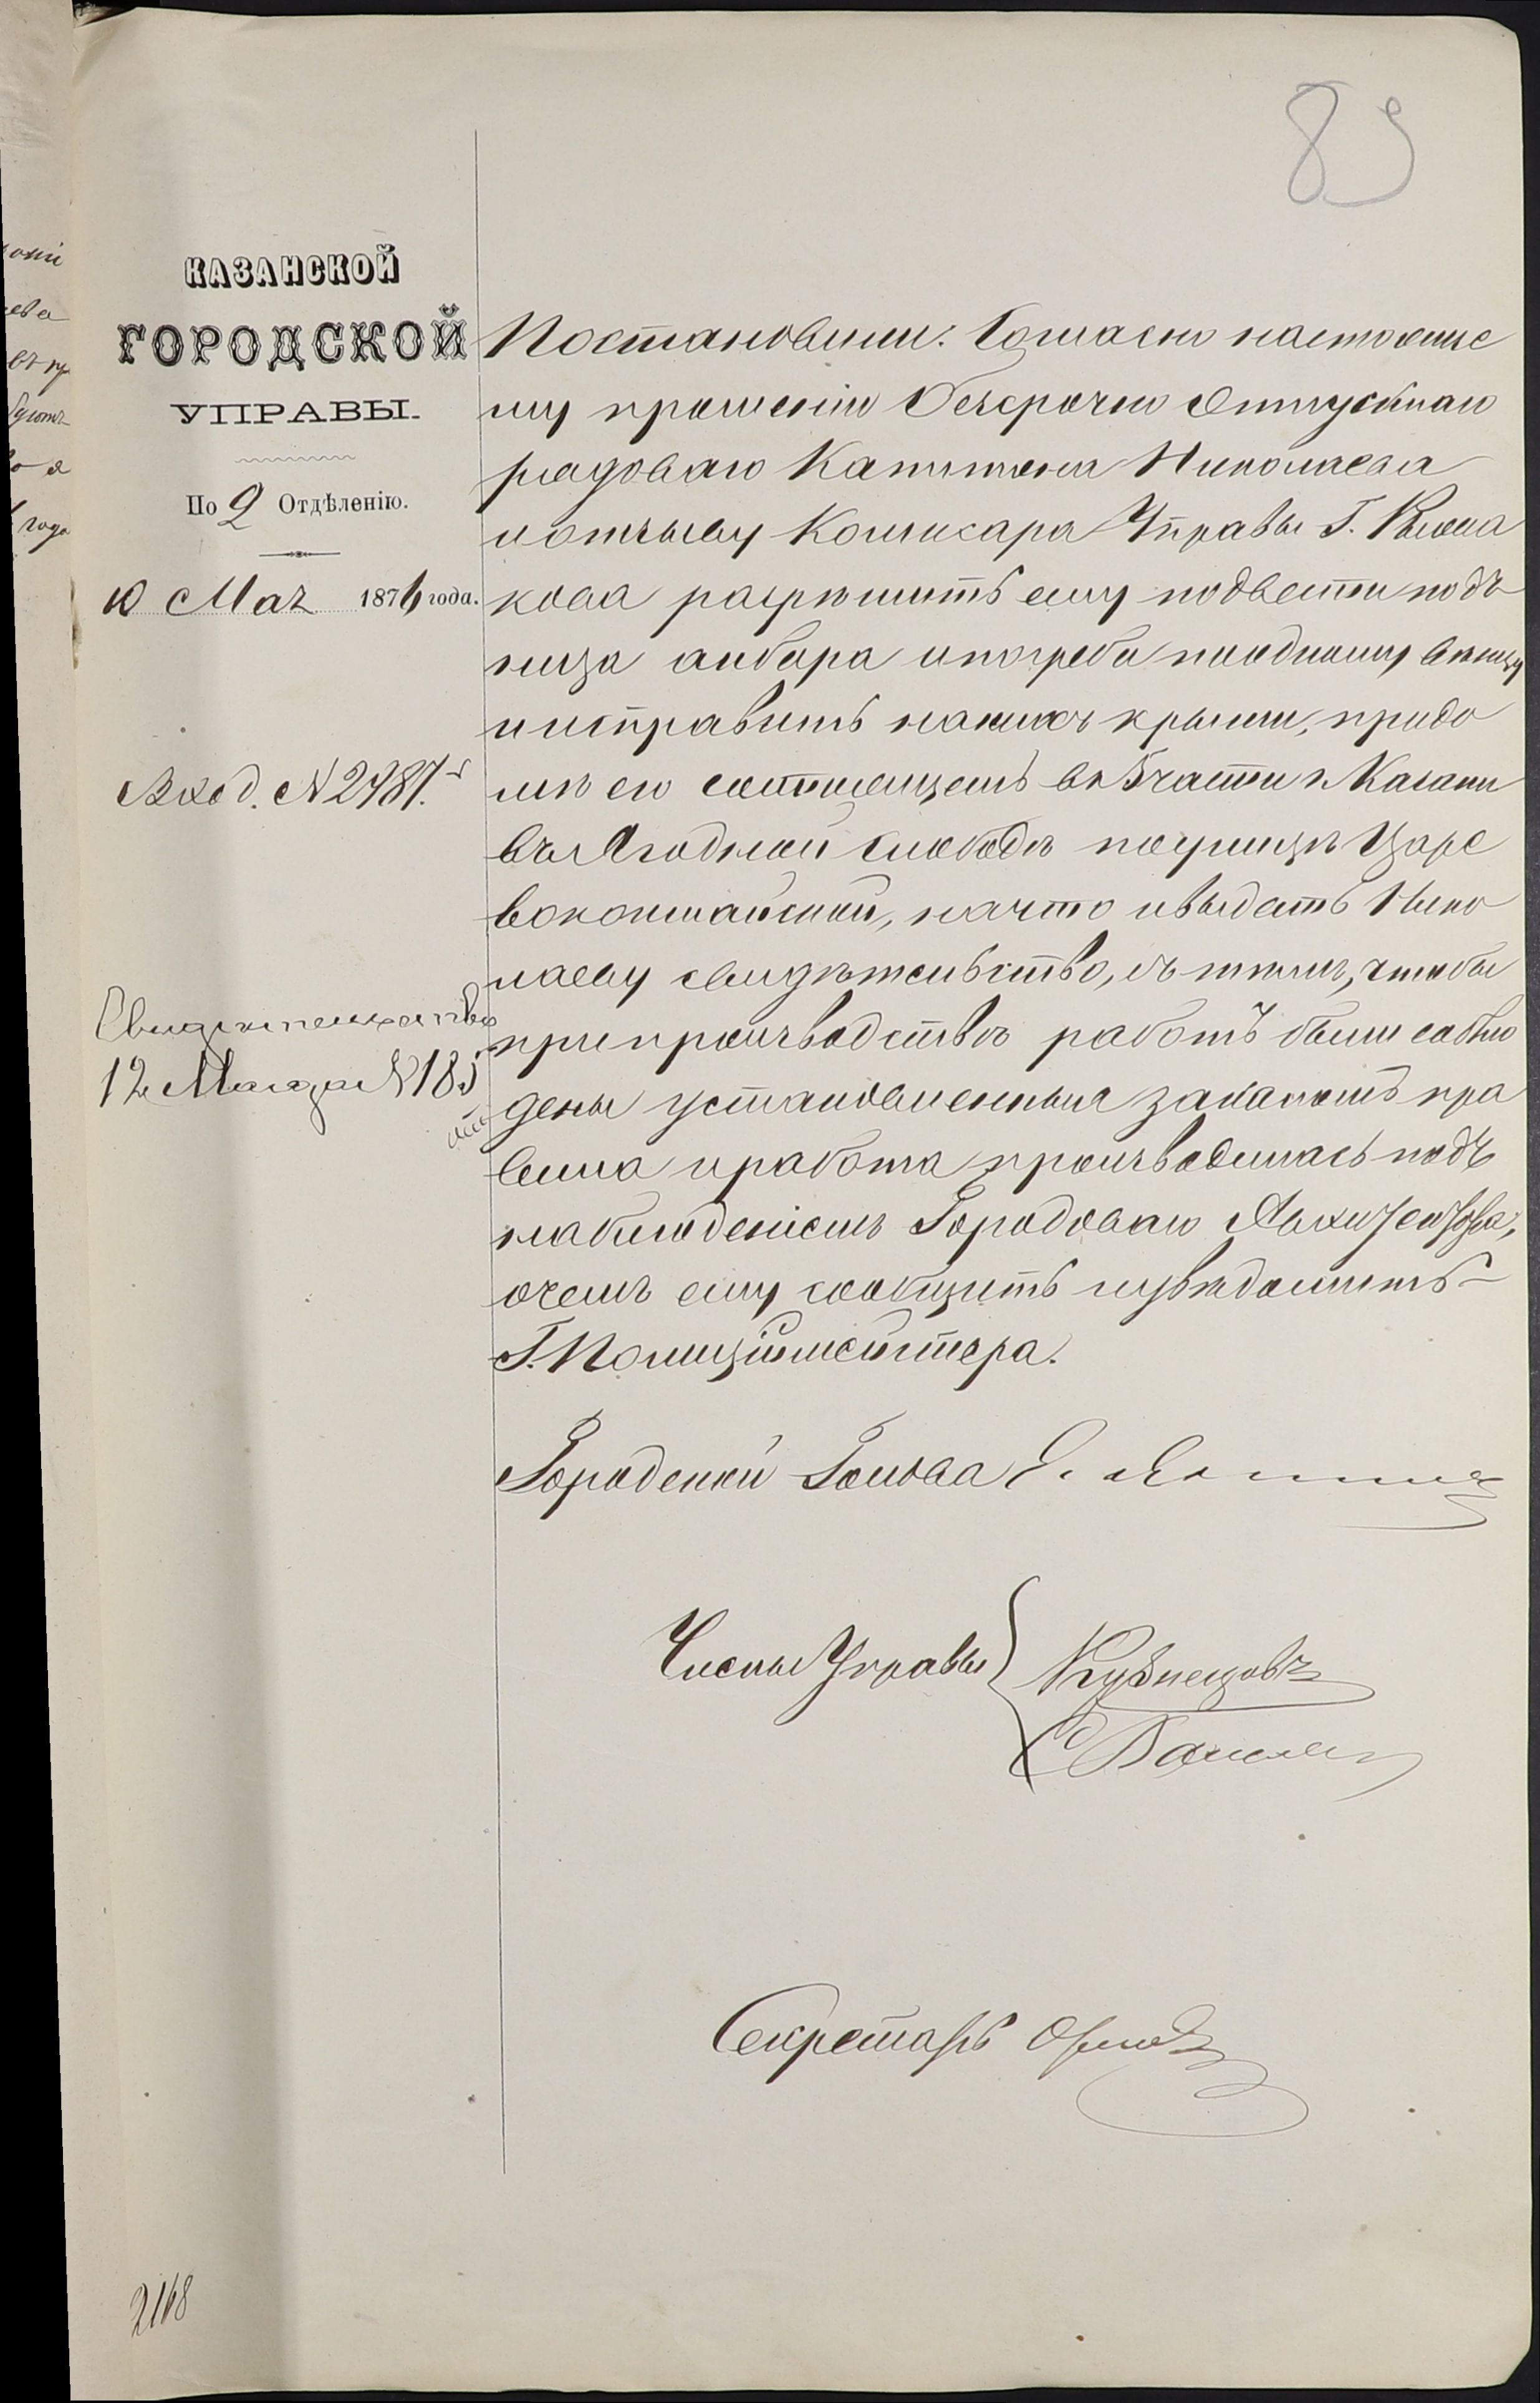 83
КАЗАНСКОЙ
ГОРОДСКОЙ
УПРАВЫ.
По 2 Отдѣленію.
10 Мар 1876 года.
Вход. № 2987.
Свидѣтельство
12 Марта № 185
Постановили: Согласно настояще
му прошенію безсрочно отпускнаго
рядоваго Капитона Николаева
и отзыву Комисара Управы Г.
кова разрѣшить ему подвести подъ
низа анбара и погреба по одному венцу
и исправить на нихъ крыши, при до
мѣ его состоящемъ въ 5 части г. Казани
въ Ягодной слободѣ по улицѣ Царе
вококшайской, на что и выдать Нико
лаеву свидѣтельство, съ тѣмъ, чтобы
при производствѣ работъ были соблю
дены установленныя закономъ пра
вила и работа производилась подъ
наблюденіемъ Городоваго Архитектора,
о чемъ ему сообщить и увѣдомить
Г. Полиціймейстера.
Городской Голова
Члены Управы
Кузнецовъ
Секретарь Орловъ
2168